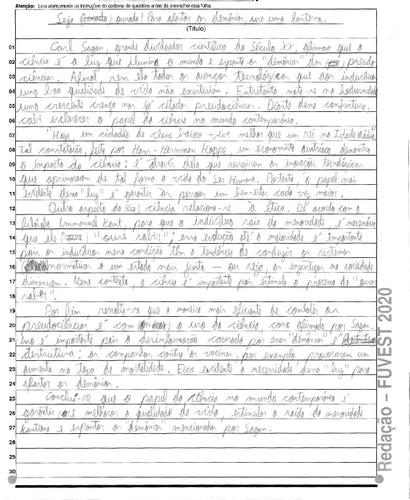 Atenção: Leia atentamente as instruções do caderno de questões antes de preencher esta folha.
Seja ousado! Para afastar os demônios use uma lanterna.
(Título)
01 Carl Sagan, grande divulgador científico do Século XX, afirmou que a
02 ciência é a luz que ilumina o mundo e espanta os "demônios" das pseudo
03 ciências. Afinal, sem ela todos os avanços tecnológicos que aos indivíduos
04 uma boa qualidade de vida não existiriam. Entretanto nota-se na
05 uma crescente crença nas já citadas pseudociências. Diante dessa conjuntura,
06 cabe esclarecer o papel da ciência no mundo contemporâneo.
07 "Hoje um cidadão de classe baixa vive melhor que um rei na Idade Média"
08 tal constatação, feita por Hans-Hermann Hoppe, um economista austríaco demonstra
09 o impacto da ciência; é através dela que surgiram as inovações tecnológicas
10 que aprimoraram de tal forma a vida do Ser Humano. Portanto o papel mais
11 evidente dessa "luz" é garantir às pessoas um bem-estar cada vez maior.
12 Outro aspecto da ciência relaciona-se à Ética. De acordo com o
13 filósofo Immanuel Kant, para que o indivíduo saia da menoridade é necessário
14 que ele "ouse saber"; essa evolução até a maioridade é importante
15 pois os indivíduos nessa condição têm a tendência de conduzir os sistemas
16 normativos a um estado mais justo — ou seja, as injustiças na sociedade
17 diminuem. Nesse contexto, a ciência é importante pois estimula o processo de "ousar
18 saber".
19 Por fim, ressalta-se que a maneira mais eficiente de combater as
20 pseudociências é com o uso da ciência como afirmado por Sagan.
21 Isso é importante pois a desinformação causada por esses demônios é
22 destrutiva; as campanhas contra as vacinas, por exemplo, provocaram um
23 aumento na taxa de mortalidade. Fica evidente a necessidade dessa "luz" para
24 afastar os demônios.
25 Conclui-se que o papel da ciência no mundo contemporâneo é
26 garantir e melhorar a qualidade de vida, estimular a saída da menoridade
27 kantiana e espantar os "demônios" mencionados por Sagan.
28
29
30
Redação – FUVEST 2020